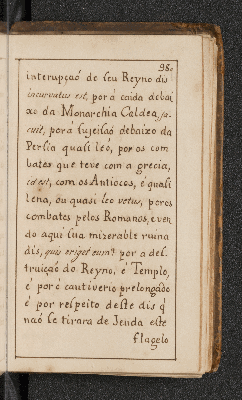 98.
interupçaõ de seu Reyno dis
incurvatus est, por á caida debai
xo da Monarchia Caldea, ja
cuit, por á sugeisaõ debaixo da
Persia quasi leó, por os com
bates que teve com a grecia,
id est, com os Antiocos, é quasi
lena, ou quasi leo vetus, por os
combates pelos Romanos, e ven
do aqui sua mizerable ruina
dis, quis eriget eum? por a des
truiçaõ do Reyno, é Templo,
é por é cautiverio prelongado
é por respeito deste dis q̃
naõ se tirara de Jeuda este
flagelo